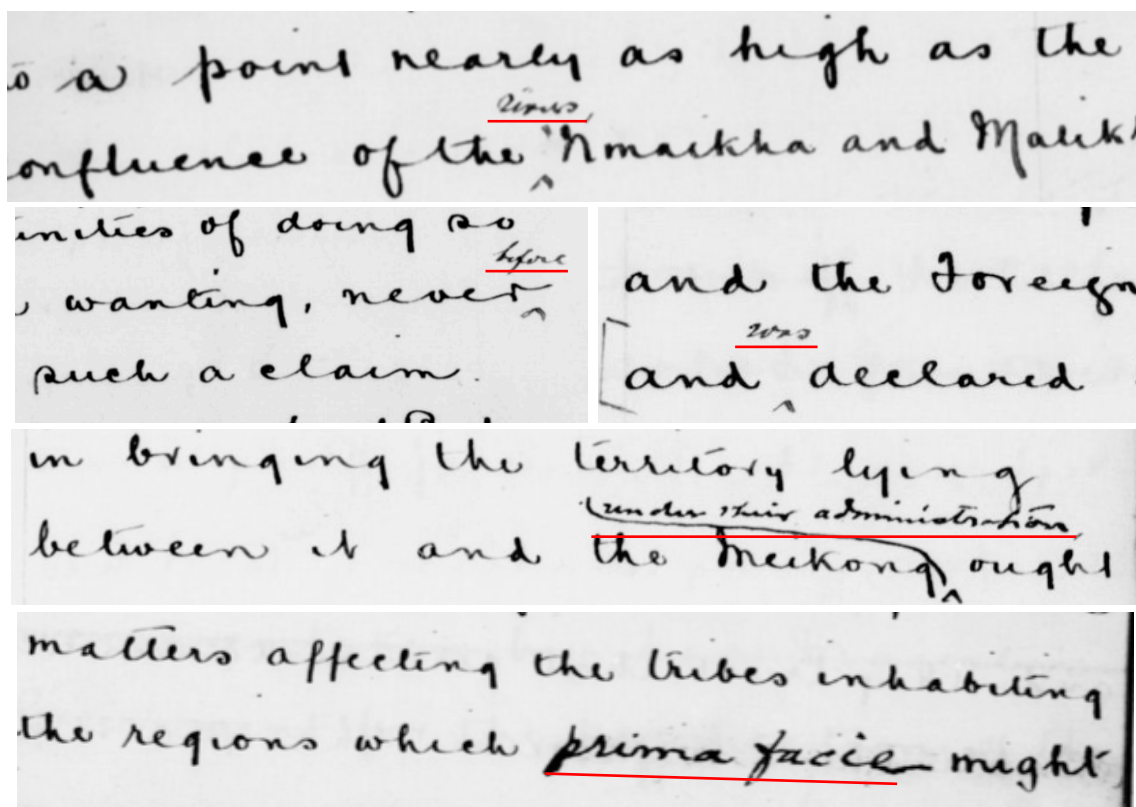 to a point nearly as high as the
rivers
onfluence of the Nmaikha and Malikh
unities of doing so
before
wanting, never
such a claim.
and the Foreign
was
and declared
in bringing the territory lying
under their administration
between it and the Meikong ought
matters affecting the tribes inhabiting
the regions which prima facie might